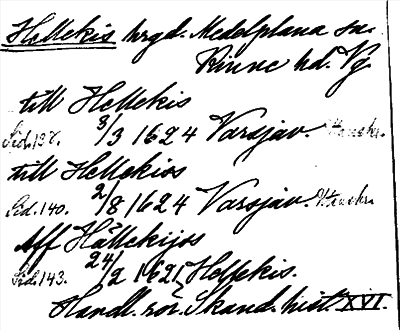 Hellekis hrgd. Medelplana sn.
Kinne hd. Vg.
till Hellekis
Sid. 138. 3/3 1624 Varsjav.
till Hellekios
Sid. 140. 2/8 1624 Varsjav.
Aff Hällekijss
Sid. 143. 24/2 1621, Hellekis.
Handl. rör. Skand. hist. XVI.